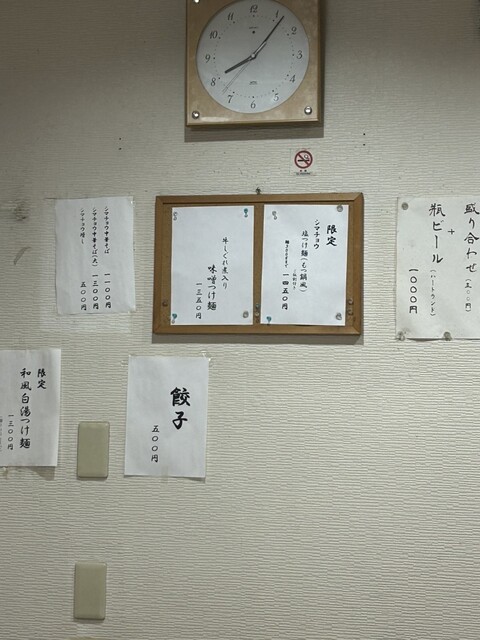 12
1
2
3
4
5
6
7
8
9
10
11
盛り合わせ(五〇〇円)
+
瓶ビール(ハートランド)
一〇〇〇円
限定
シマチョウ
塩つけ麺(もつ鍋風)
一四五〇円
牛しぐれ煮入り
味噌つけ麺
一三五〇円
シマチョウ中華そば 一一〇〇円
シマチョウ中華そば(大) 一三〇〇円
シマチョウ増し 五〇〇円
餃子
五〇〇円
限定
和風白湯つけ麺
一三〇〇円